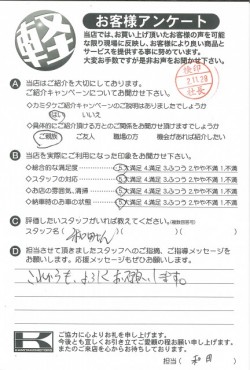 軽
お客様アンケート
当店では、お買い上げ頂いたお客様の声を可能
な限り現場に反映し、お客様により良い商品と
サービスを提供する事に努めています。
大変お手数ですが是非お声をお聞かせ下さい。
検印
2.11.28
社長
A 当店はご紹介を大切にしております。
ご紹介キャンペーンについてお聞かせ下さい。
◇カミタケご紹介キャンペーンのご説明はありましたでしょうか
はい いいえ
◇具体的にご紹介頂ける方とのご関係をお聞かせ頂けますでしょうか
ご親族 ご友人 職場の方 機会があれば紹介したい
B 当店を実際にご利用になった印象をお聞かせ下さい。
◇総合的な満足度 5.大満足 4.満足 3.ふつう 2.やや不満 1.不満
◇スタッフの対応 5.大満足 4.満足 3.ふつう 2.やや不満 1.不満
◇お店の雰囲気、清掃 5.大満足 4.満足 3.ふつう 2.やや不満 1.不満
◇納車時のお車の状態 5.大満足 4.満足 3.ふつう 2.やや不満 1.不満
C 評価したいスタッフがいれば教えてください。(複数回答可)
スタッフ名( 和田さん )
D 担当させて頂きましたスタッフへのご指摘、ご指導メッセージを
お願いします。応援メッセージもぜひお願いします。
これからも、よろしくお願いします。
K
ご協力に心よりお礼を申し上げます。
今後とも宜しくお引き立てご愛顧の程お願い申し上げます。
またのご来店を心からお待ちしております。
担当( 和田 )